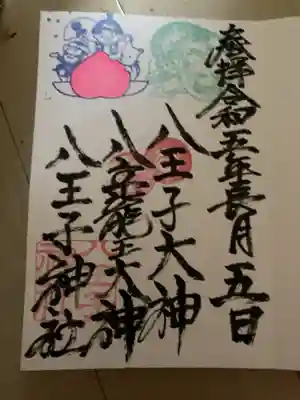 奉拝 令和五年長月五日
八王子大神
八大龍王大神
八王子神社